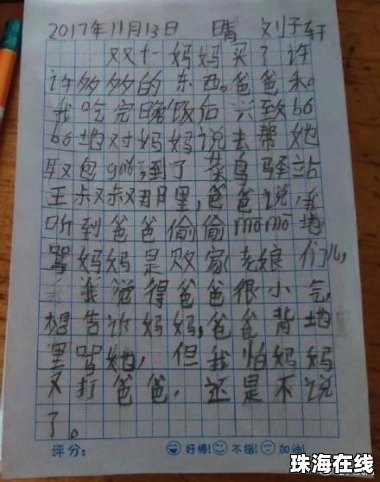 2017年11月13日 晴 刘子轩
双十一妈妈买了许
许多多的东西。爸爸和
我吃完晚饭后兴致bó
bó地对妈妈说去帮她
取包guǒ,到了菜鸟驿站
王叔叔那里,爸爸说,我
听到爸爸偷偷mōmō地
骂妈妈是败家老娘们儿,
我觉得爸爸很小气,
想告诉妈妈,爸爸背地
里骂她,但我怕妈妈
又打爸爸,还是不说
了。
评分: 好棒! 不错! 加油!
珠海在线